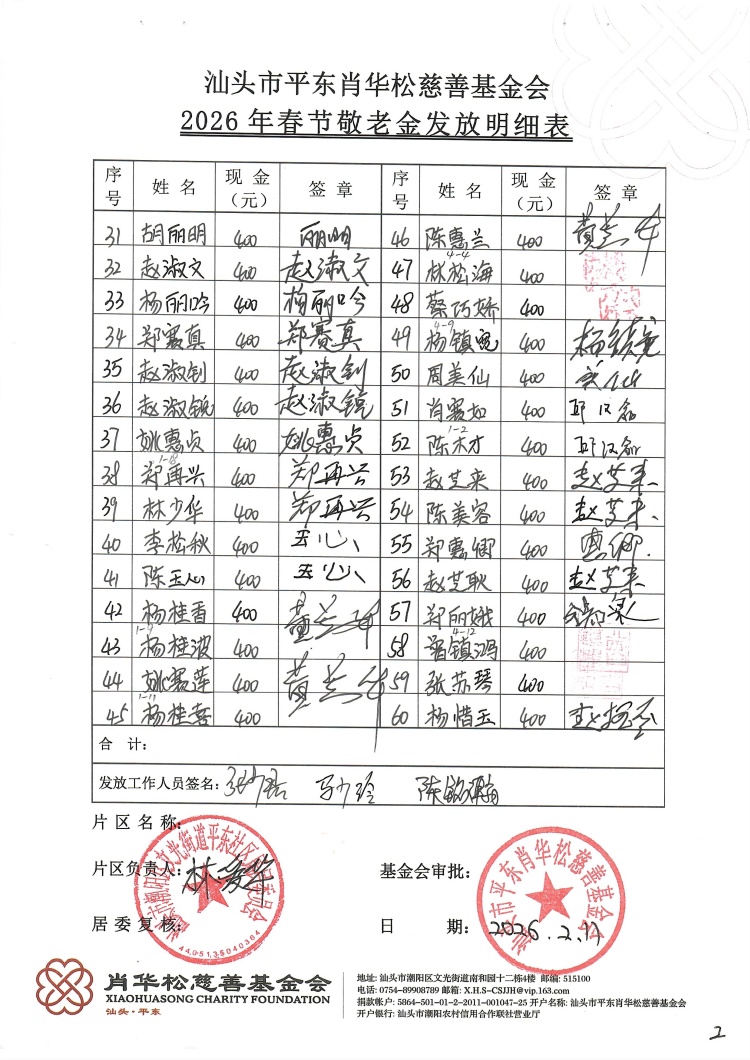 汕头市平东肖华松慈善基金会
2026年春节敬老金发放明细表
序号 姓名 现金（元） 签章 序号 姓名 现金（元） 签章
31 胡丽明 400 丽明 46 陈惠兰 400
32 赵淑文 400 赵淑文 47 4-4 林松海 400
33 杨丽吟 400 杨丽吟 48 蔡巧娇 400
34 郑赛真 400 郑赛真 49 4-9 杨镇 400
35 赵淑钊 400 赵淑钊 50 周美仙 400 美仙
36 赵淑镜 400 赵淑镜 51 肖赛如 400
37 姚惠贞 400 姚惠贞 52 1-2 陈木才 400
38 1-18 郑再兴 400 郑再兴 53 赵芝来 400 赵芝来
39 林少华 400 郑再兴 54 陈美容 400 赵芝来
40 李松秋 400 玉心 55 郑惠卿 400 惠卿
41 陈玉心 400 玉心 56 赵芝耿 400 赵芝来
42 杨桂香 400 57 郑丽娥 400
43 1-9 杨桂波 400 58 4-12 镇鸿 400
44 姚赛莲 400 59 张苏琴 400
45 1-11 杨桂喜 400 60 杨惜玉 400
合 计：
发放工作人员签名： 马少玲
片区名称：
片区负责人：
基金会审批：
居委复核：
日 期： 2026.2.11
4405135040364
汕头市平东肖华松慈善基金会
肖华松慈善基金会
XIAOHUASONG CHARITY FOUNDATION
汕头·平东
地址: 汕头市潮阳区文光街道南和园十二栋4楼 邮编: 515100
电话: 0754-89908789 邮箱: X.H.S-CSJJH@vip.163.com
捐款帐户: 5864-501-01-2-2011-001047-25 开户名称: 汕头市平东肖华松慈善基金会
开户银行: 汕头市潮阳农村信用合作联社营业厅
2